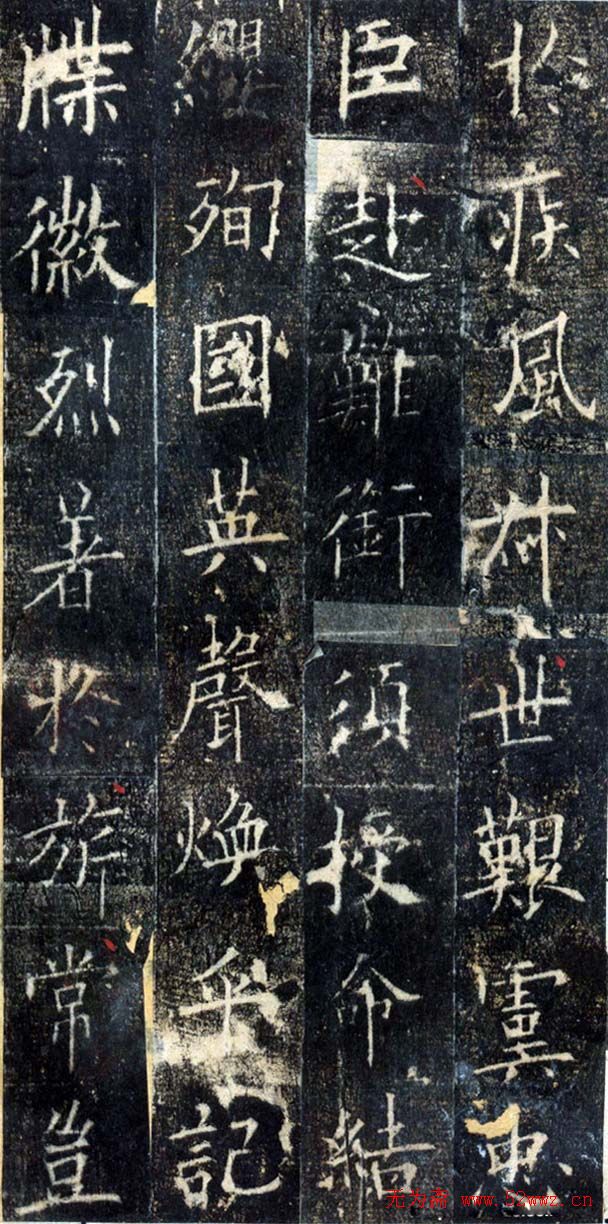 於疾風叔世艱虞忠
臣赴難銜須授命結
纓殉國英聲煥乎記
牒徽烈著於旂常豈
无为斋 www.52wwz.cn